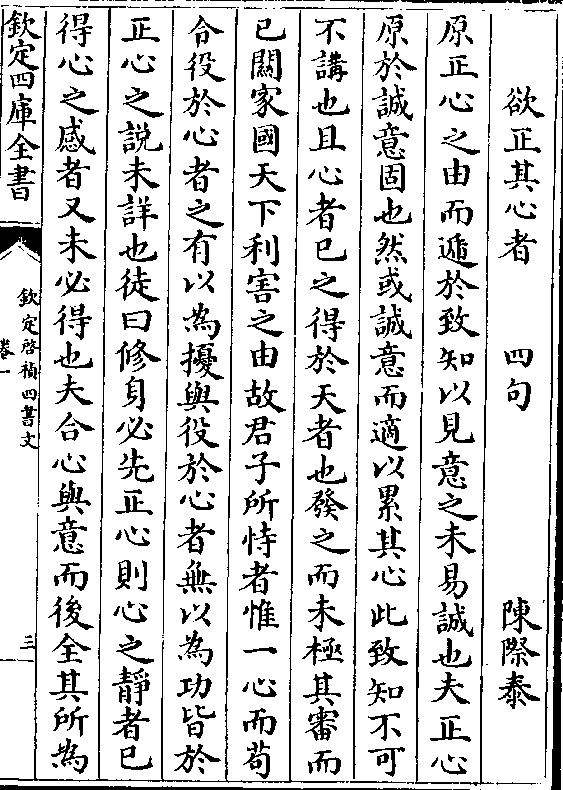 欲正其心者　四句　陳際泰
原正心之由而遞於致知以見意之未易誠也夫正心
原於誠意固也然或誠意而適以累其心此致知不可
不講也且心者已之得於天者也發之而未極其審而
已闗家國天下利害之由故君子所恃者惟一心而苟
合役於心者之有以為擾與役於心者無以為功皆於
正心之說未詳也徒曰修身必先正心則心之靜者已
得心之感者又未必得也夫合心與意而後全其所為
欽定四庫全書
欽定啓禎四書文
卷一
三